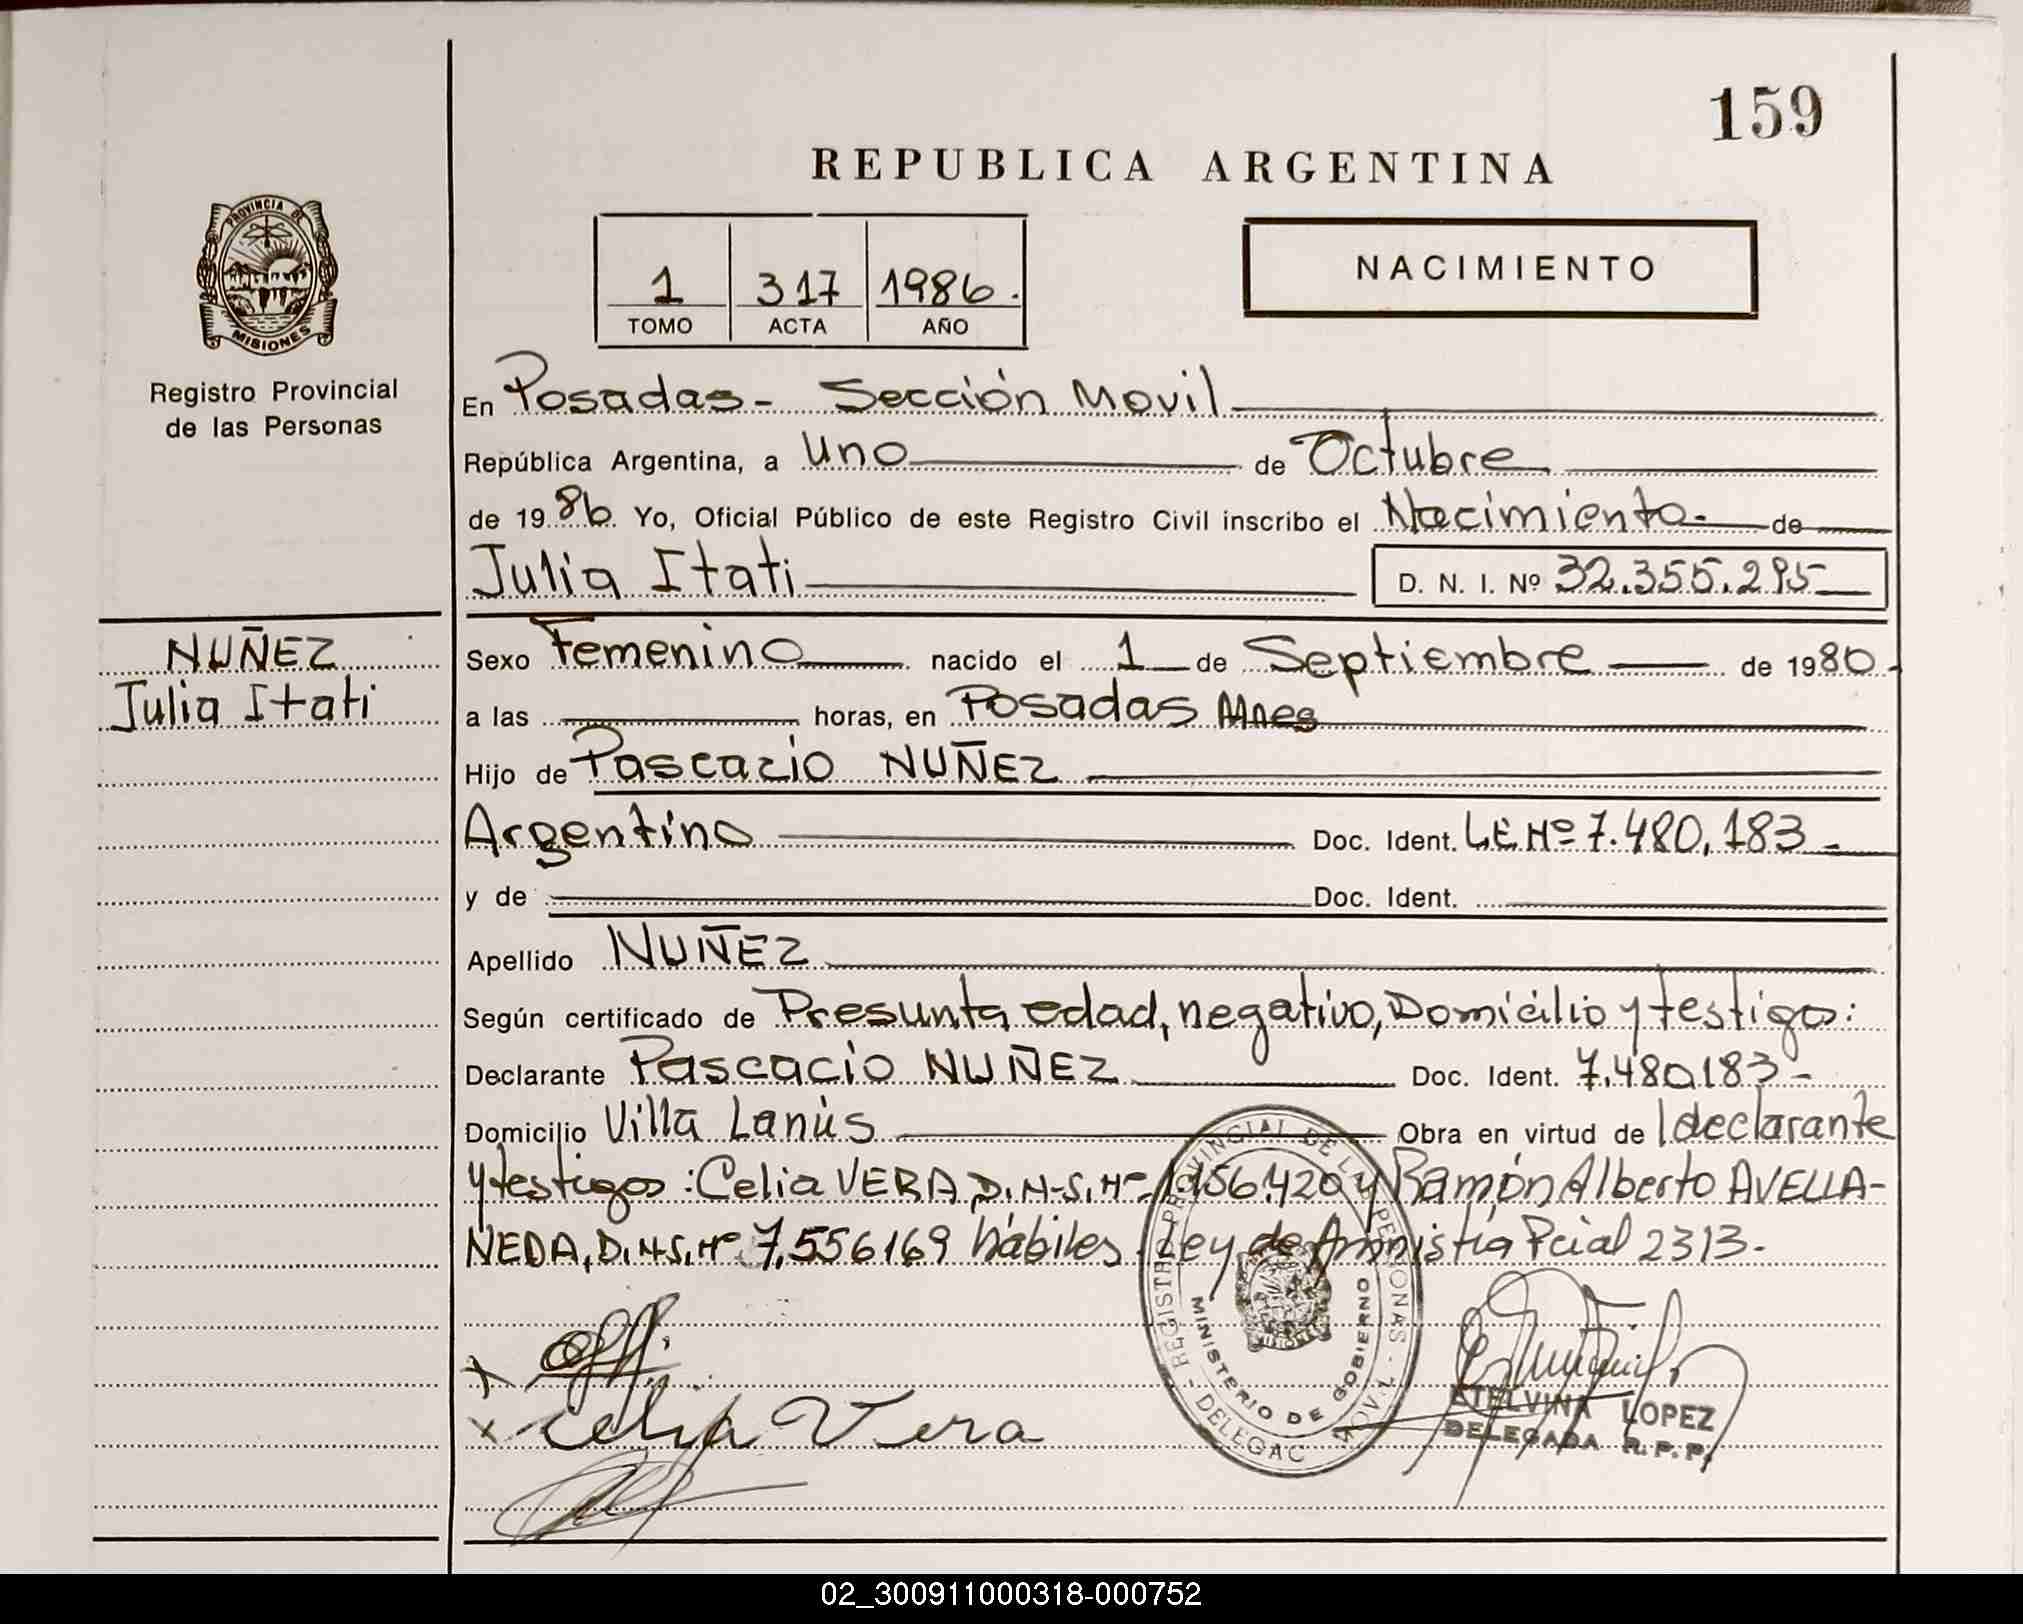 159
REPUBLICA ARGENTINA
1 317 1986.
TOMO ACTA AÑO
NACIMIENTO
PROVINCIA DE
MISIONES
Registro Provincial
de las Personas
En Posadas - Sección Movil
República Argentina, a uno de Octubre
de 1986. Yo, Oficial Público de este Registro Civil inscribo el Nacimiento. de
Julia Itati D. N. I. Nº 32.355.295
NUÑEZ
Julia Itati
Sexo Femenino nacido el 1 de Septiembre de 1980
a las horas, en Posadas Mnes
Hijo de Pascacio NUÑEZ
Argentino Doc. Ident. L.E Nº 7.480.183
y de Doc. Ident.
Apellido NUÑEZ
Según certificado de Presunta edad, negativo, Domicilio y testigo:
Declarante Pascacio NUÑEZ Doc. Ident. 7.480183-
Domicilio Villa Lanús Obra en virtud de l declarante
y testigos: Celia VERA D.N-S.Nº y Ramón Alberto AVELLA-
NEDA, D.N-S.Nº 7.556169 hábiles. Ley de Amnistía Pcial 2313.
REGISTRO PROVINCIAL DE LAS PERSONAS
MINISTERIO DE GOBIERNO
x
x Celia Vera
ETELVINA LOPEZ
DELEGADA R.P.P.
02_300911000318-000752